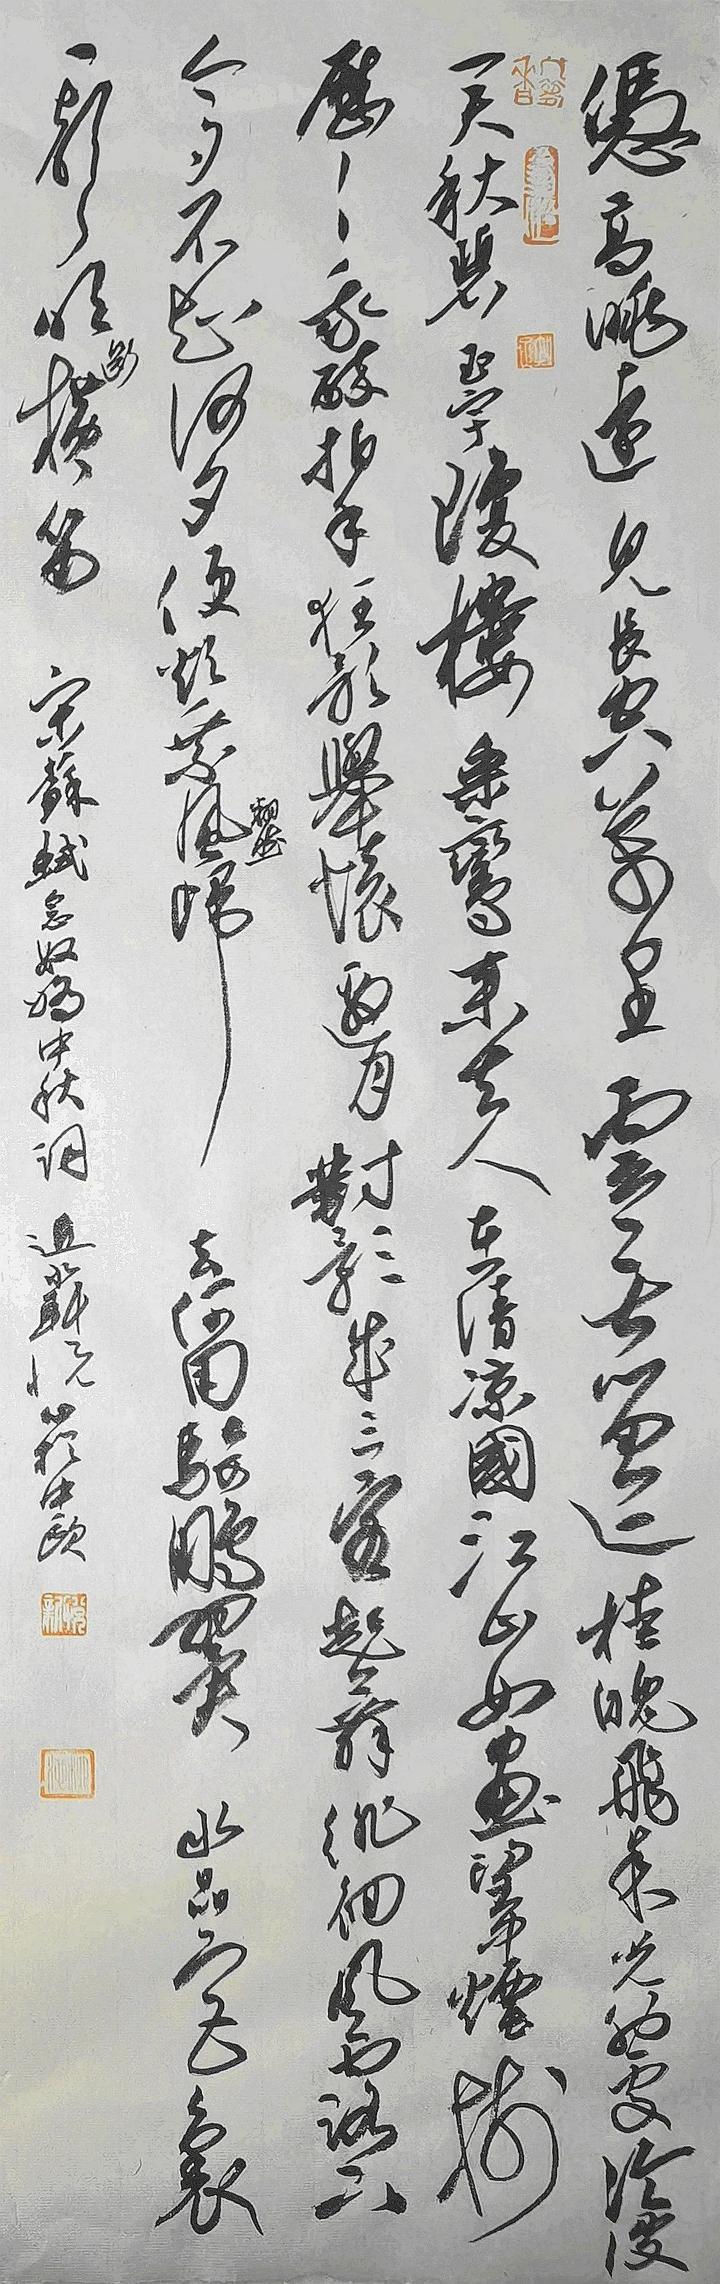 憑高眺遠見長空萬里雲無留迹桂魄飛來光射處冷浸
一天秋碧玉宇瓊樓乘鸞來去人在清涼國江山如畫望中煙樹
歷々我醉拍手狂歌舉懷邀月對影成三客起舞徘徊風露下
今夕不知何夕便欲乘風歸去何用騎鵬翼水晶宮裏
翻然
一聲吹橫笛
斷
宋蘇軾念奴嬌中秋詞